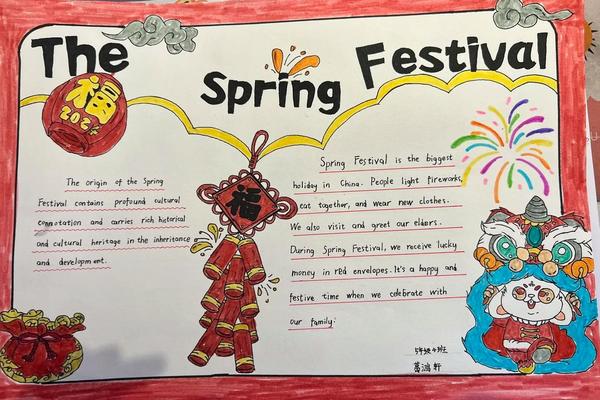 The Spring Festival
福
202
The origin of the Spring
Festival contains profound cultural
connotation and carries rich historical
and cultural heritage in the inheritance
and development.
福
Spring Festival is the biggest
holiday in China. People light fireworks,
eat together, and wear new clothes.
We also visit and greet our elders.
During Spring Festival, we receive lucky
money in red envelopes. It's a happy and
festive time when we celebrate with
our family.
葛鸿轩